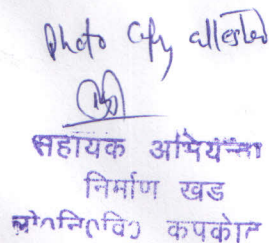 Photo Copy attested
सहायक अभियन्ता
निर्माण खड
लो०नि०वि० कपकोट